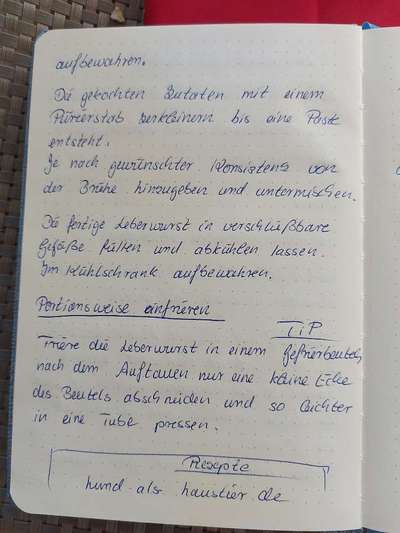 aufbewahren.
Die gekochten Zutaten mit einem
Pürierstab zerkleinern bis eine Paste
entsteht.
Je nach gewünschter Konsistenz von
der Brühe hinzugeben und untermischen.
Die fertige Leberwurst in verschlüßbare
Gefäße füllen und abkühlen lassen.
Im Kühlschrank aufbewahren.
Portionsweise einfrieren
TiP
Friere die Leberwurst in einem Gefrierbeutel,
nach dem Auftauen nur eine kleine Ecke
des Beutels abschneiden und so leichter
in eine Tube pressen.
Rezepte
hund als haustier de